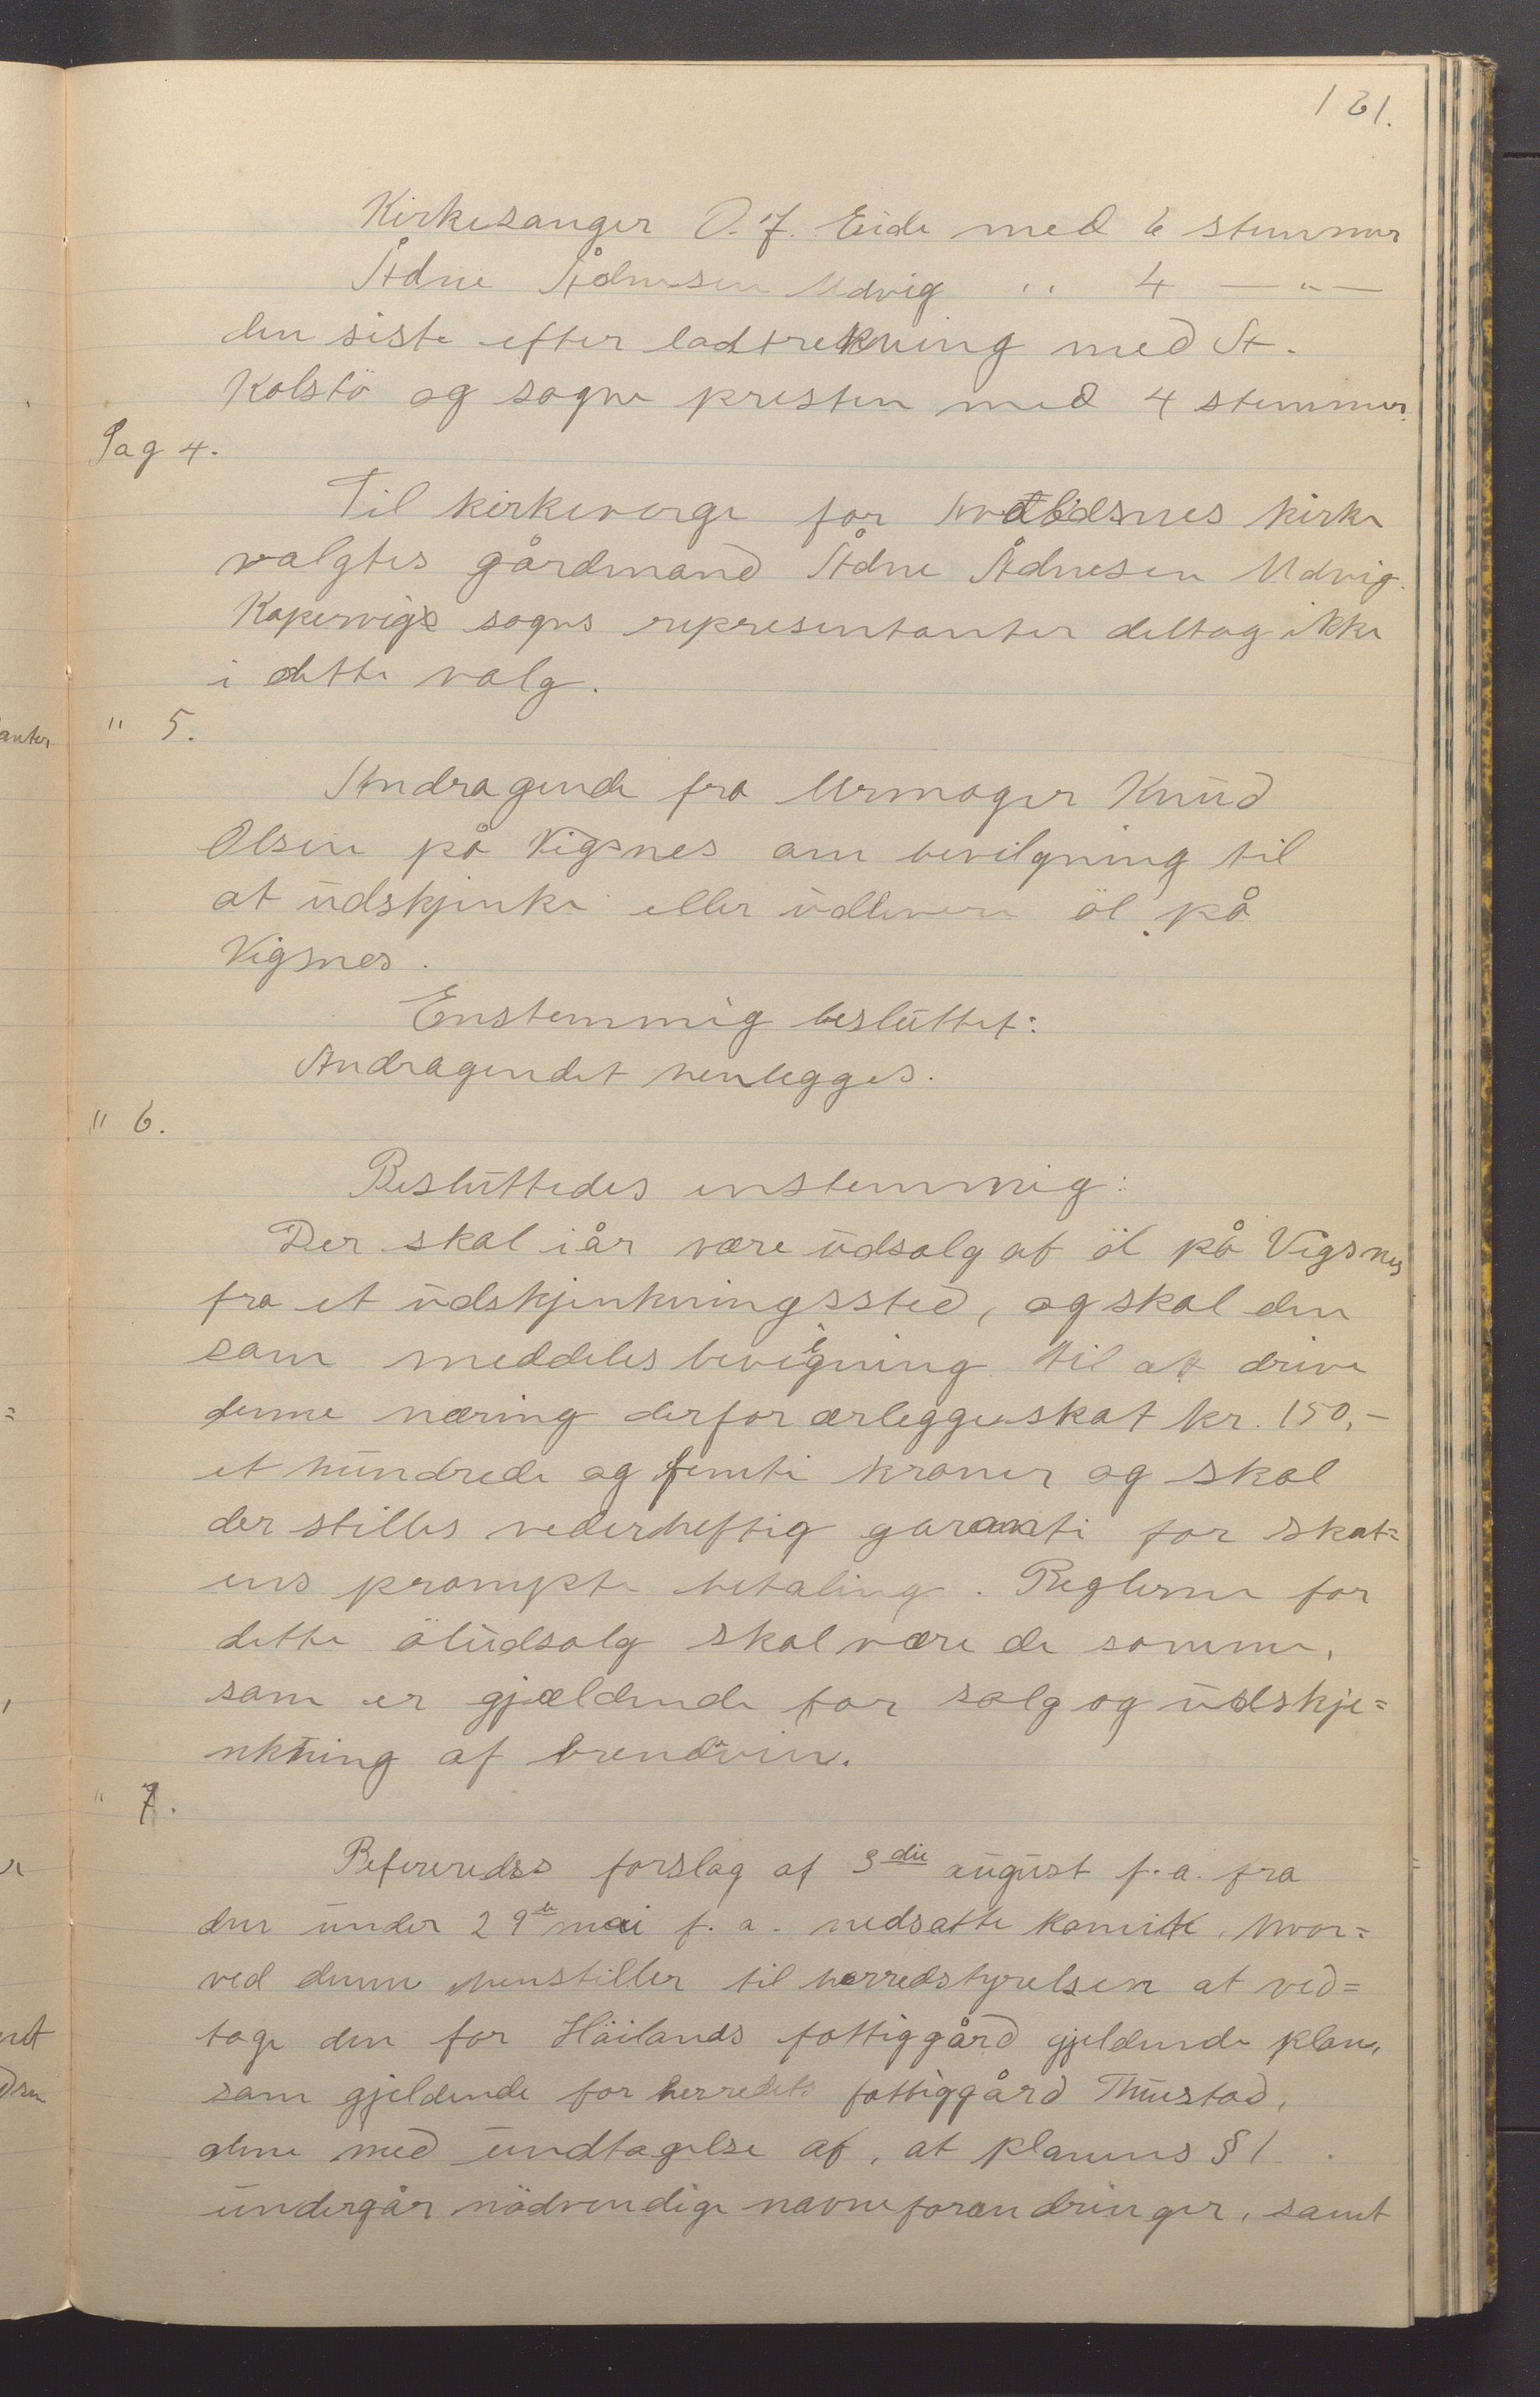 161.
Kirkesanger O. J. Eide med 6 stemmer
Ådne Ådnesen Udvig " 4 — " —
den siste efter lodtrekning med A.
Kolstö og sogne presten med 4 stemmer.
Sag 4.
Til kirkeverge for hvalsnes kirke
valgtes gårdmand Ådne Ådnesen Udvig.
Kopervigs sogns representanter deltog ikke
i dette valg.
" 5.
Andragende fra Urmager Knud
Olsen på Vigsnes om bevilgning til
at udskjenke eller udlevere öl på
Vigsnes.
Enstemmig besluttet:
Andragendet henlegges.
" 6.
Besluttedes enstemmig:
Der skal iår være udsalg af öl på Vigsnes
fra et udskjenkningssted, og skal den
som meddeles bevilgning til at drive
denne næring derfor ærlegge skat kr. 150,-
et hundrede og femti kroner og skal
der stilles vederheftig garanti for skat=
ens prompte betaling. Reglerne for
dette öludsalg skal være de samme,
som er gjældende for salg og udskje=
nkning af brendvin.
" 7.
Refereredes forslag af 3die august f. a. fra
den under 29de mai f. a. nedsatte komite, hvor=
ved denne henstiller til herredstyrelsen at ved=
tage den for Häilands fattiggård gjeldende plan,
som gjeldende for herredets fattiggård Thuestad,
alene med undtagelse af, at planens § 1
undergår nödvendige navneforandringer, samt
anter